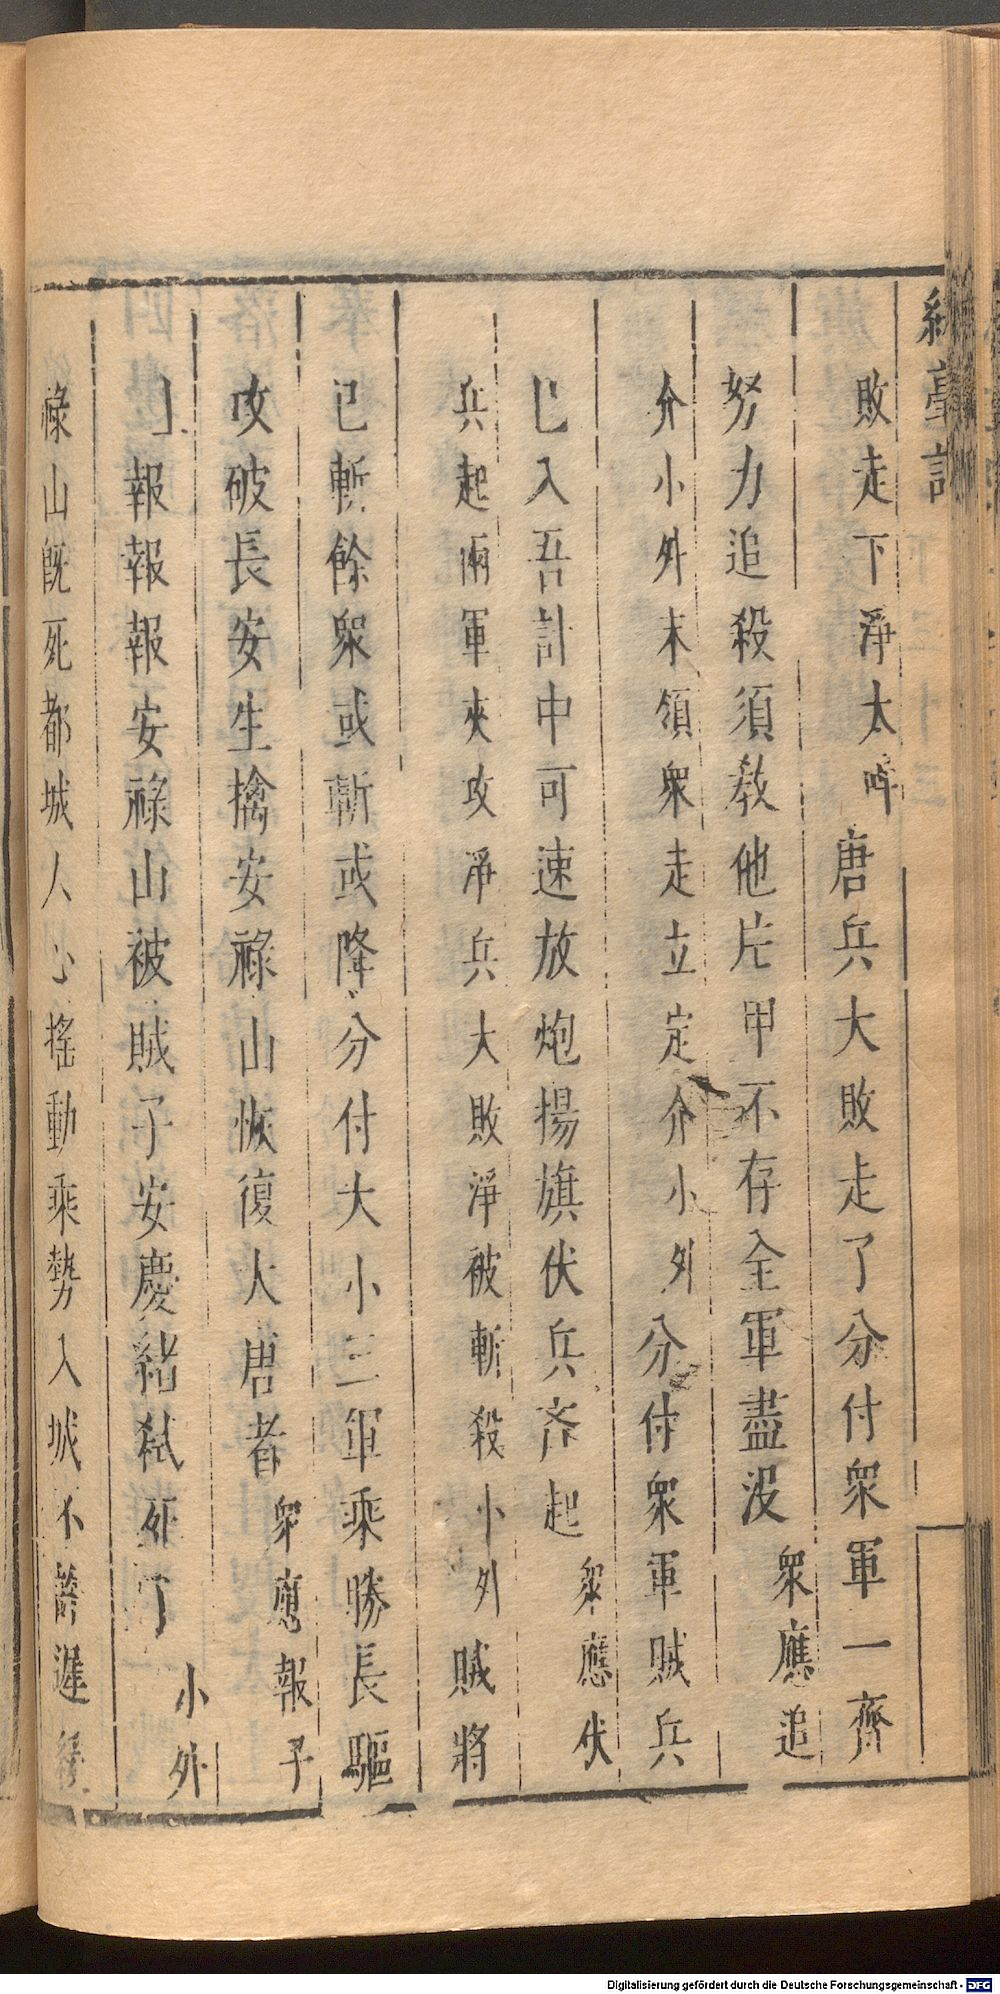 敗走下淨太吽唐兵大敗走了分付衆軍一齊
努力追殺須教他片甲不存全軍盡没衆應追
介小外末領衆走立定介小外分付衆軍賊兵
已入吾計中可速放炮揚旗伏兵齐起衆應伏
兵起兩軍夾攻淨兵大敗淨被斬殺小外賊將
已斬餘衆或斬或降分付大小三軍乘勝長驅
攻破長安生擒安祿山恢復大唐者衆應報子
報報報安祿山被賊子安慶緒弒死了小外
祿山旣死都城人心搖動乘勢入城不
Digitalisierung gefördert durch die Deutsche Forschungsgemeinschaft - DFG